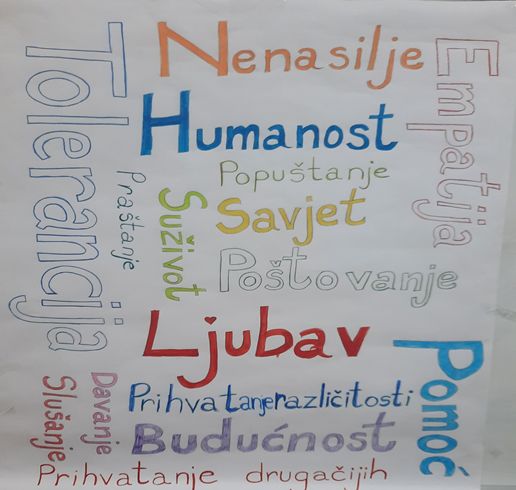 Tolerancija
Nenasilje
Empatija
Humanost
Popuštanje
Praštanje
Suživot
Savjet
Poštovanje
Ljubav
Pomoć
Slušanje
Davanje
Prihvatanje različitosti
Budućnost
Prihvatanje drugačijih